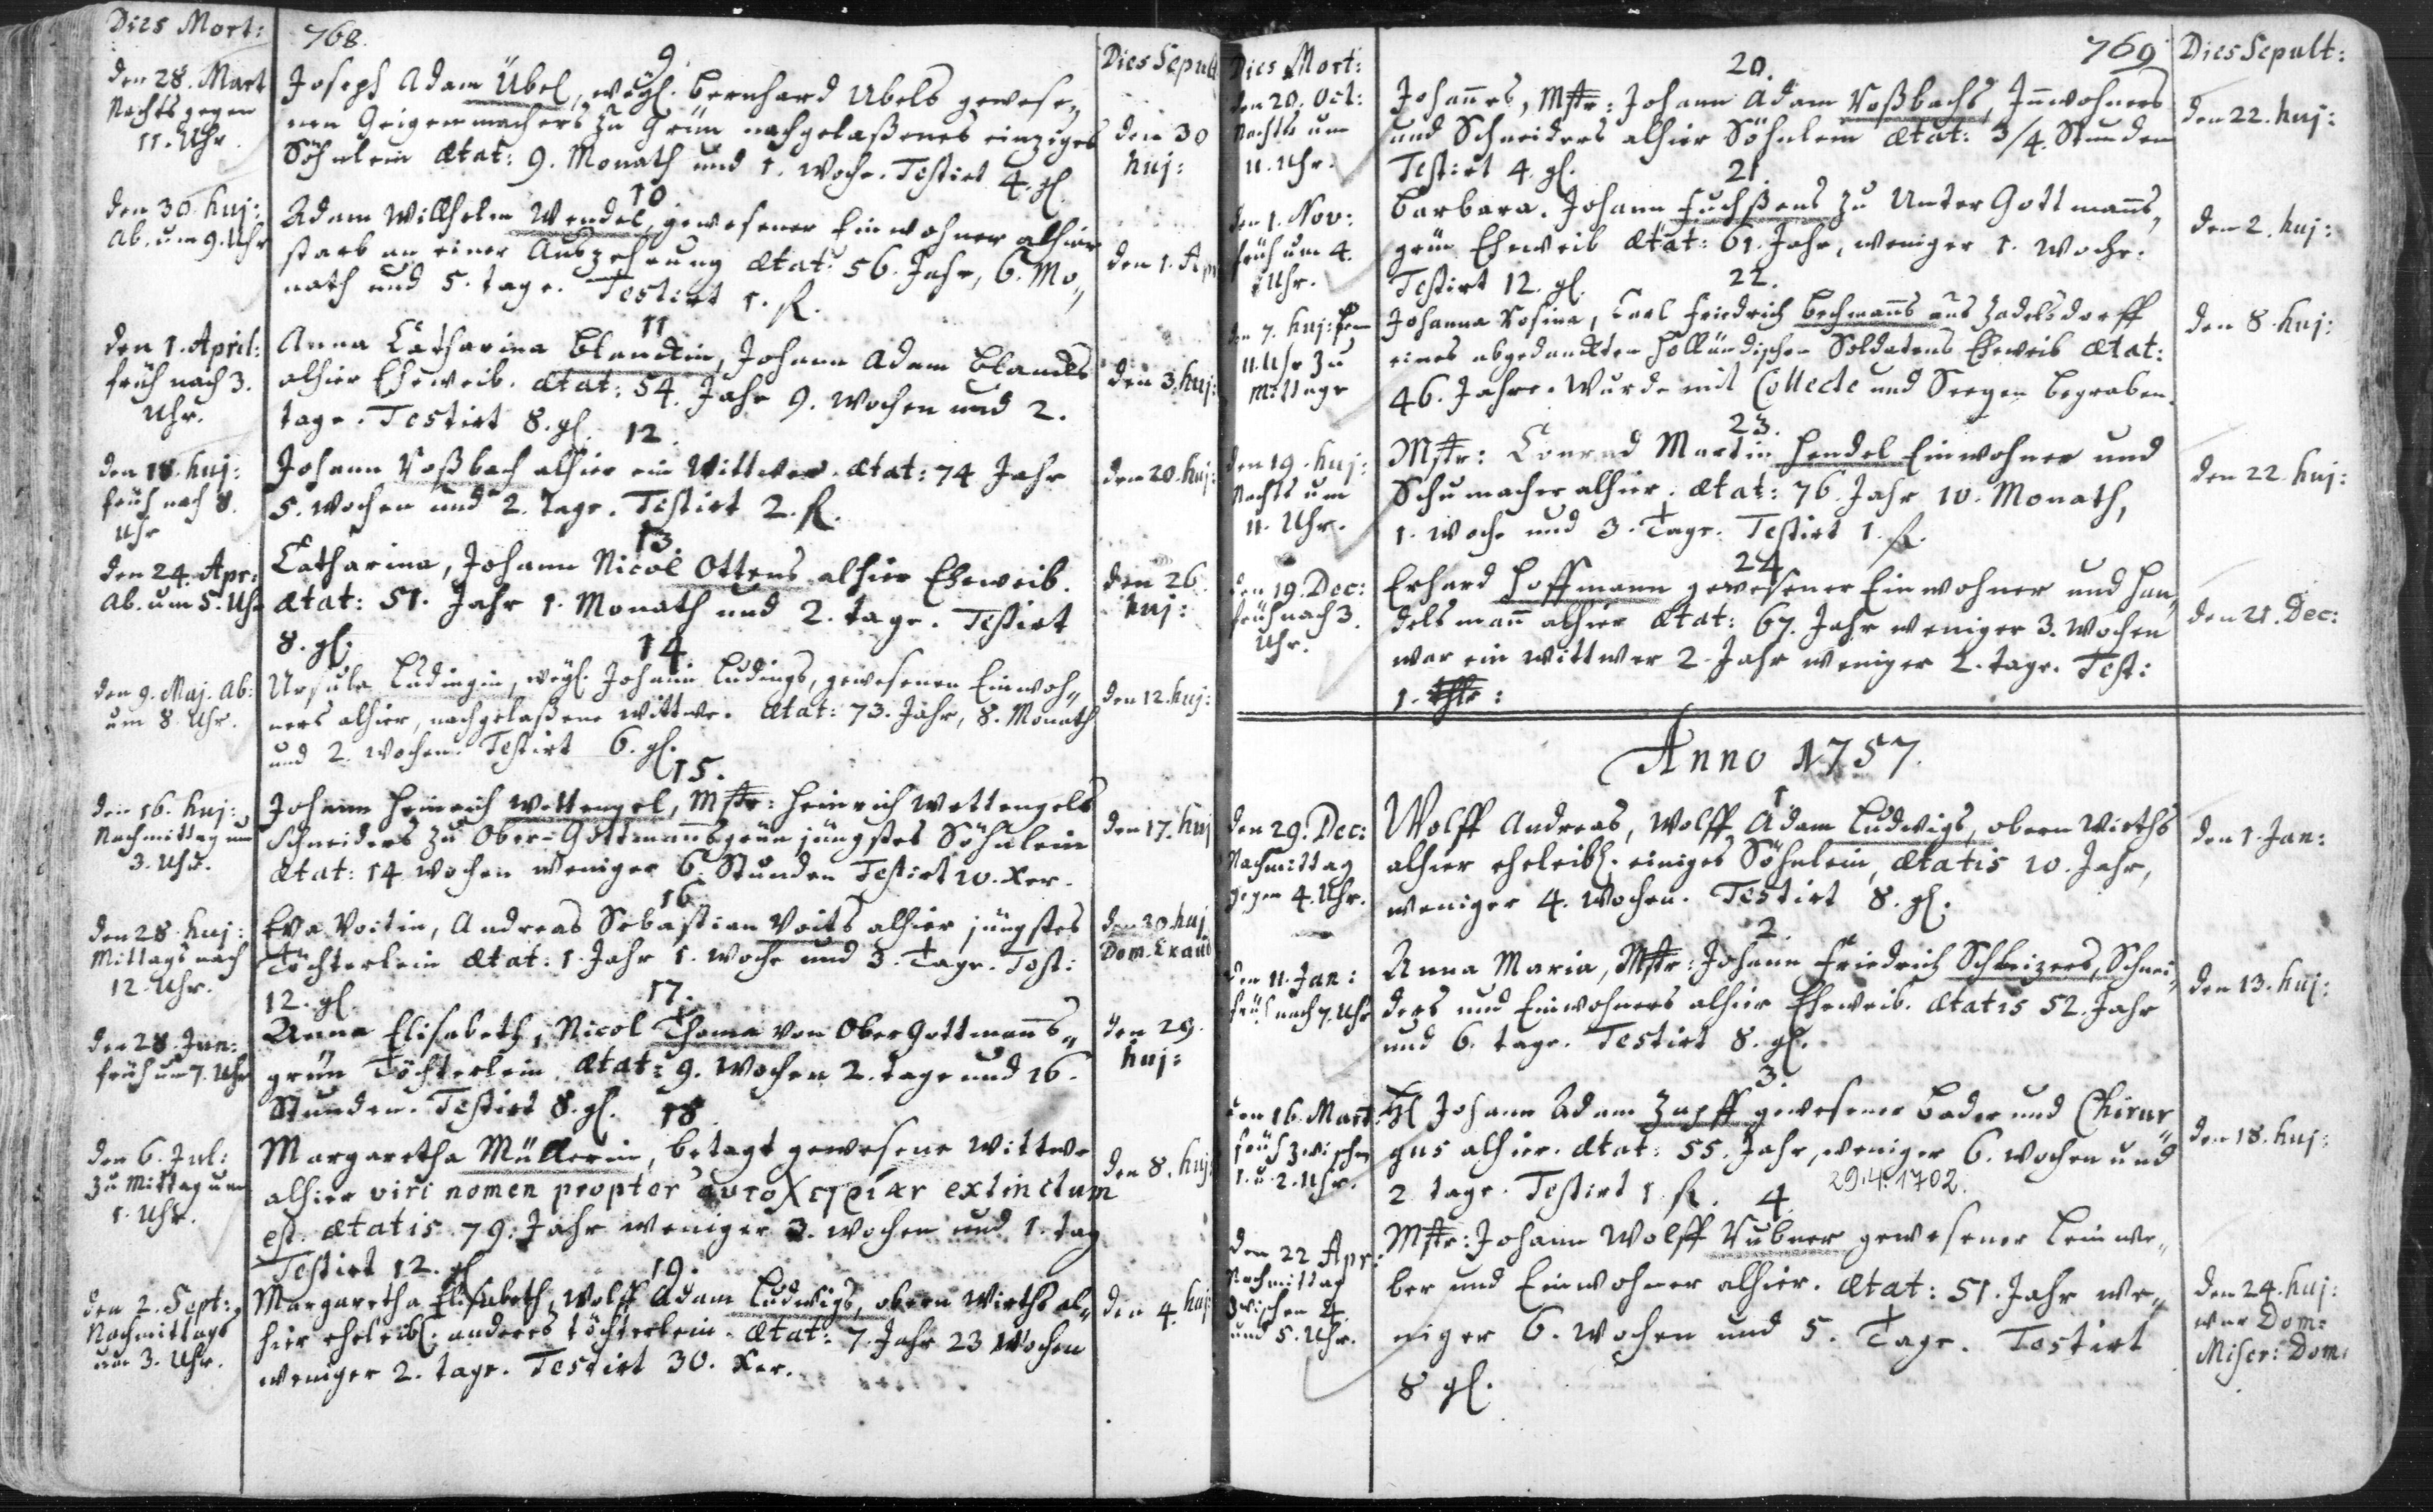 Dies Mort:
768.
Dies Sepult
9.
den 28. Mart
Nachts gegen
11. Uhr.
Joseph Adam Übel, weyl. Bernhard Übels gewese„
nen Geigenmachers zu Grün nachgelaßenes einziges
Söhnlein Ætat: 9. Monath und 1. Woche. Testirt 4. gl.
den 30
huj:
10
den 30. huj:
Ab. um 9. Uhr
Adam Willhelm Wendel, gewesener Einwohner alhier
starb an einer Auszehrung Ætat: 56. Jahr, 6. Mo„
nath und 5. tage. Testirt 1. fl.
den 1. Apr
11
den 1. April:
früh nach 3.
Uhr.
Anna Catharina Blanckin, Johann Adam Blancks
alhier Eheweib. Ætat: 54. Jahr 9. Wochen und 2.
tage. Testirt 8. gl.
den 3. huj:
12.
den 18. huj:
früh nach 8.
Uhr
Johann Voßbach alhier ein Wittwer. Ætat: 74 Jahr
5. Wochen und 2. Tage. Testirt 2. fl.
den 20. huj:
13.
den 24. Apr:
Ab. um 5. Uhr
Catharina, Johann Nicol Ottens alhier Eheweib.
Ætat: 51. Jahr 1. Monath und 2. tage. Testirt
8. gl.
den 26
huj:
14
den 9. Maj. Ab:
um 8. Uhr.
Ursula Ludingin, weyl. Johann Ludings, gewesenen Einwoh„
ners alhier, nachgelaßene Wittwe. Ætat: 73. Jahr, 8. Monath
und 2. Wochen. Testirt 6. gl.
den 12. huj:
15.
den 16. huj:
Nachmittag um
3. Uhr.
Johann Heinrich Wettengel, Mstr: Heinrich Wettengels
Schneiders zu Ober-Gottmannsgrün jüngstes Söhnlein
Ætat: 14. Wochen weniger 6. Stunden Testirt 10. Xer.
den 17. huj
16
den 28. huj:
Mittags nach
12. Uhr.
Eva Voitin, Andreas Sebastian Voits alhier jüngstes
Töchterlein Ætat: 1. Jahr 1. Woche und 3. Tage. Test:
12. gl.
den 30. huj
Dom. Exaud
17.
den 28. Jun:
früh um 7. Uhr
Anna Elisabeth, Nicol Thoma von Ober Gottmanns„
grün Töchterlein. Ætat: 9. Wochen 2. tage und 16.
Stunden. Testirt 8. gl.
den 29.
huj:
18
den 6. Jul:
zu Mittag um
1. Uhr.
Margaretha Müllerin, betagt gewesene Wittwe
alhier viri nomen propter extinctum
est. Ætatis 79. Jahr weniger 3. Wochen und 1. tag
Testirt 12. gl
den 8. huj:
19.
den 2. Sept:
Nachmittags
um 3. Uhr.
Margaretha Elisabeth, Wolff Adam Ludwigs, obern Wirths al„
hier eheleibl. anderes töchterlein. Ætat: 7. Jahr 23 Wochen
weniger 2. tage. Testirt 30. Xer.
den 4. huj:
Dies Mort:
769
Dies Sepult:
20.
den 20. Oct:
Nachts um
11. Uhr.
Johannes, Mstr: Johann Adam Voßbachs, Innwohners
und Schneiders alhier Söhnlein Ætat: 3/4. Stunden
Testirt 4. gl.
den 22. huj:
21.
den 1. Nov:
früh um 4.
Uhr.
Barbara. Johann Fuchßens zu Unter Gottmanns„
grün Eheweib Ætat: 61. Jahr, weniger 1. Woche.
Testirt 12. gl.
den 2. huj:
22.
den 7. huj:
11. Uhr zu
Mittage
Johanna Rosina, Carl Friedrich Bechmanns aus Zadelsdorff
eines abgedanckten Holländischen Soldatens Eheweib Ætat:
46. Jahre. Wurde mit Collecte und Seegen begraben.
den 8. huj:
23.
den 19. huj:
Nachts um
11. Uhr.
Mstr: Conrad Martin Hendel Einwohner und
Schumacher alhier. Ætat: 76. Jahr 10. Monath,
1. Woche und 3. Tage. Testirt 1. fl.
den 22. huj:
24
den 19. Dec:
früh nach 3.
Uhr.
Erhard Hoffmann gewesener Einwohner und Han„
delsmann alhier Ætat: 67. Jahr weniger 3. Wochen
war ein Wittwer 2. Jahr weniger 2. tage. Test:
1. thlr:
den 21. Dec:
Anno 1757.
1
den 29. Dec:
Nachmittag
gegen 4. Uhr.
Wolff Andreas, Wolff Adam Ludwigs, obern Wirths
alhier eheleibl. einiges Söhnlein, Ætatis 10. Jahr,
weniger 4. Wochen. Testirt 8. gl.
den 1. Jan:
2.
den 11. Jan:
früh nach 7. Uhr
Anna Maria, Mstr: Johann Friedrich Schleizers, Schnei„
ders und Einwohners alhier Eheweib. Ætatis 52. Jahr
und 6. tage. Testirt 8. gl.
den 13. huj:
3.
den 16. Mart:
früh zwischen
1. u. 2. Uhr.
H Johann Adam Zapff gewesener Bader und Chirur„
gus alhier. Ætat: 55. Jahr, weniger 6. Wochen und
2 tage. Testirt 1. fl.
29.4.1702.
den 18. huj:
4
den 22 Apr:
Nachmittag
zwischen 4.
und 5. Uhr.
Mstr: Johann Wolff Rubner gewesener Leinwe„
ber und Einwohner alhier. Ætat: 51. Jahr we„
niger 6. Wochen und 5. Tage. Testirt
8 gl.
den 24. huj:
war Dom:
Miser: Dom: